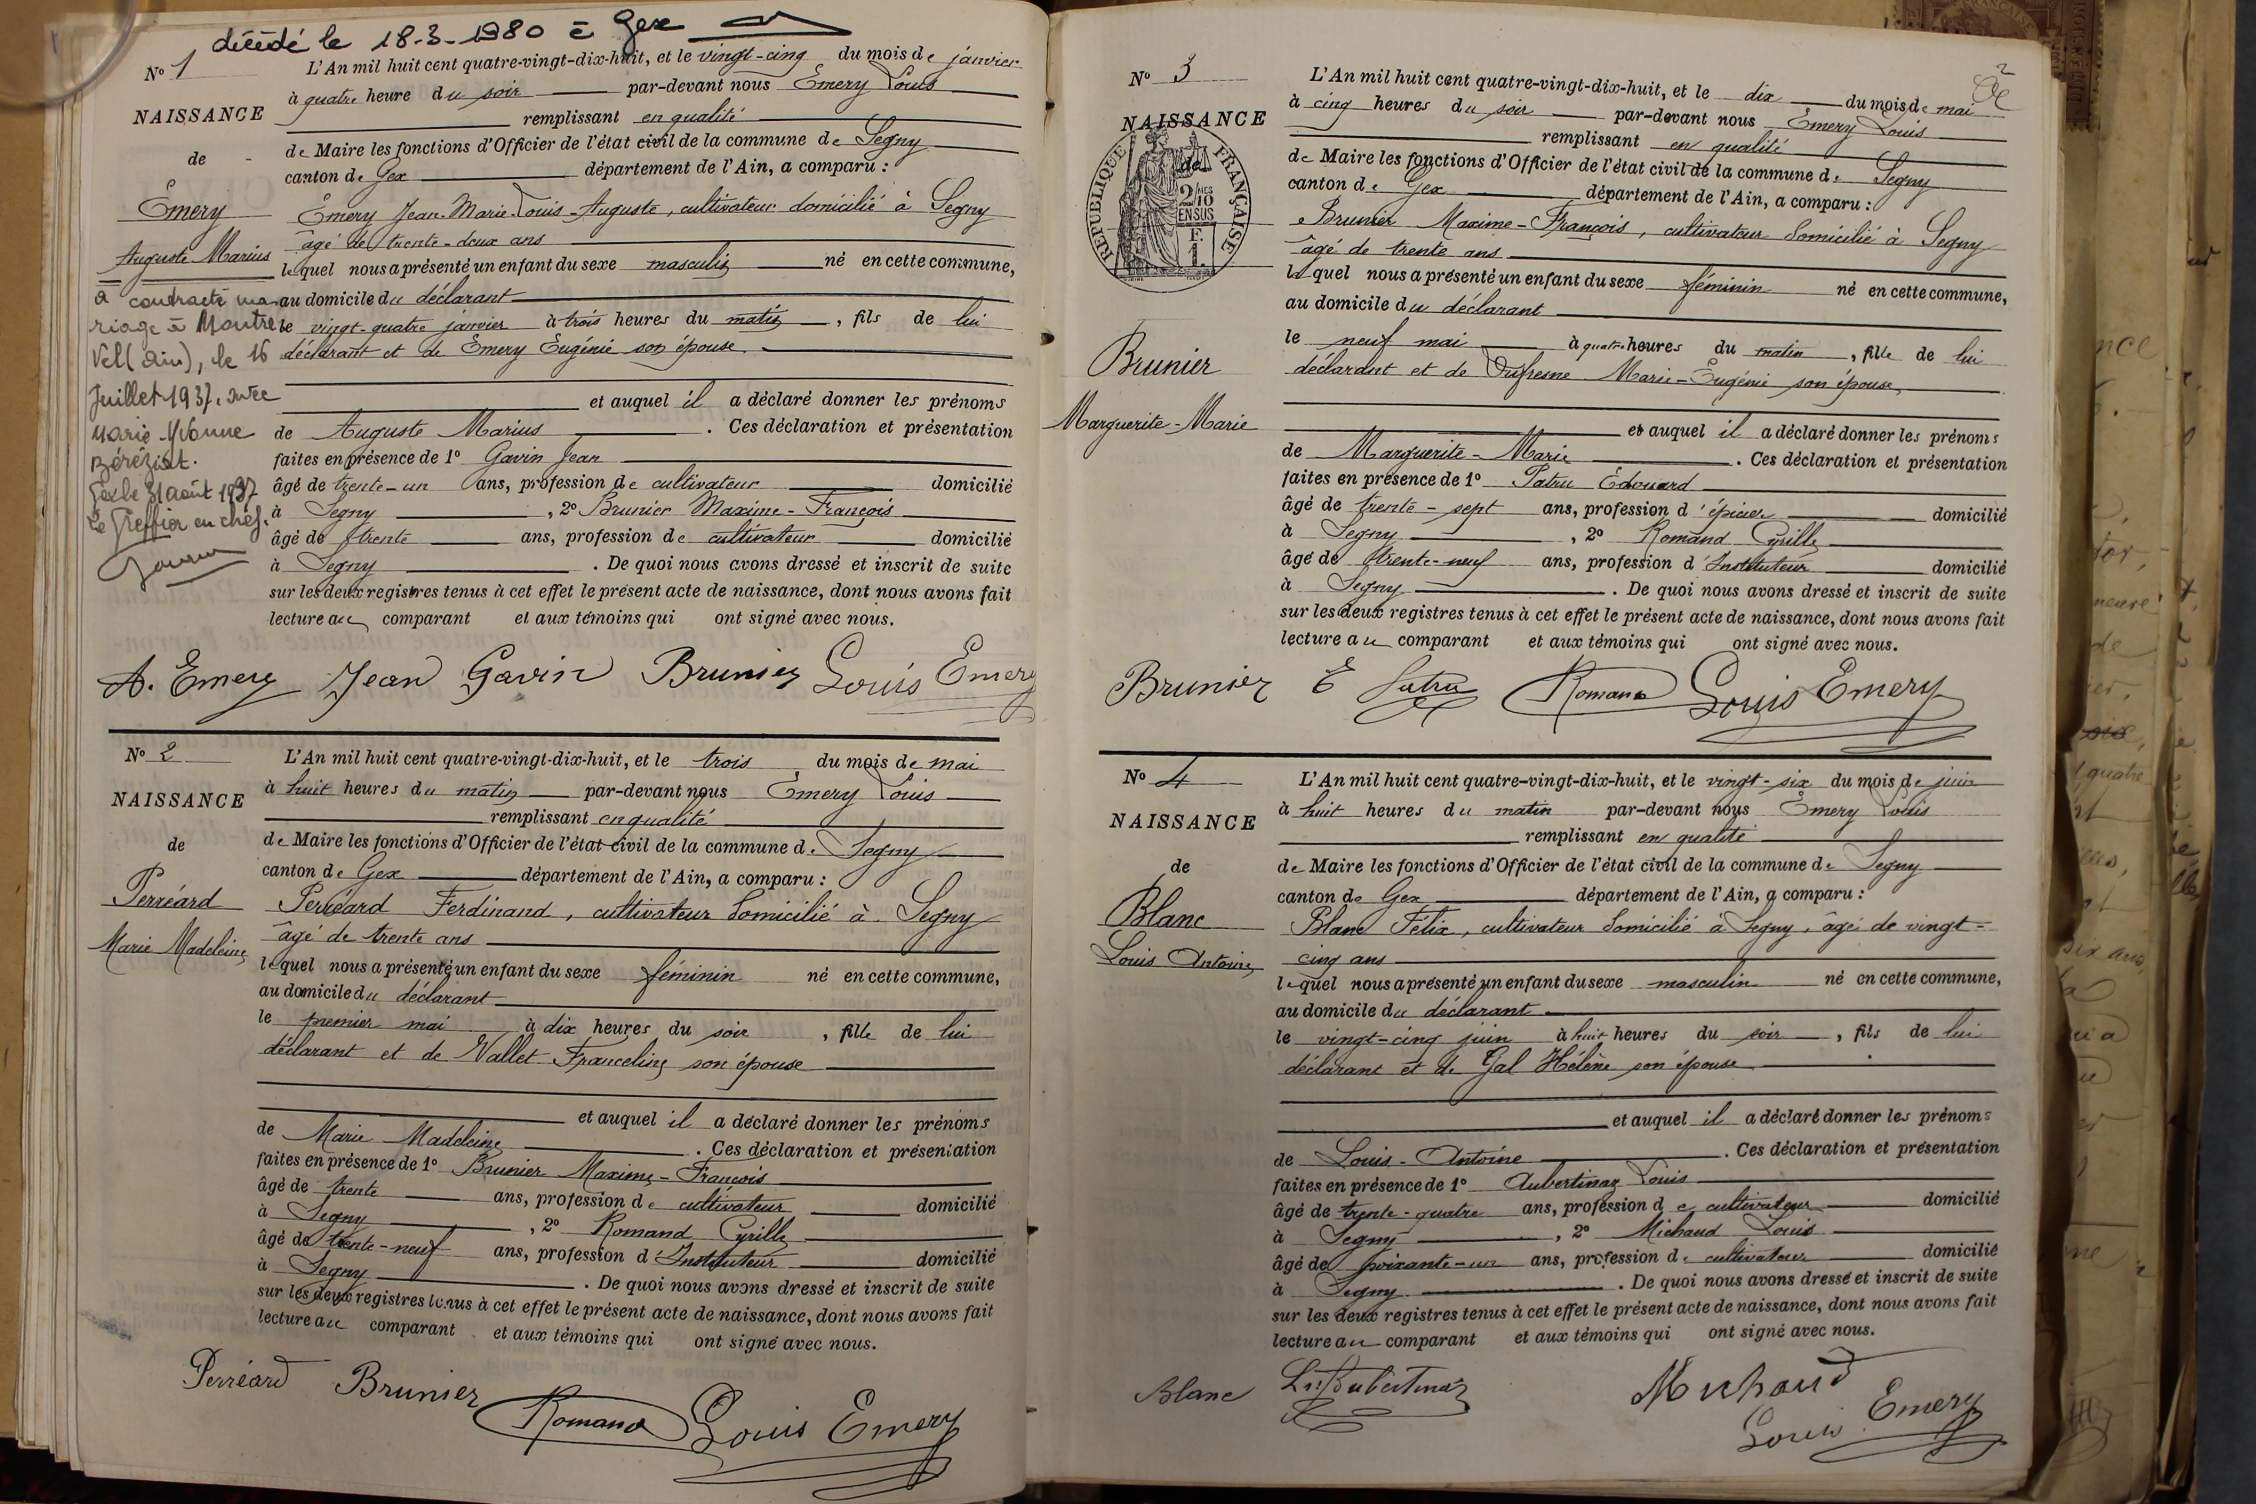 décédé le 18-3-1980 à Gex
N° 1
L'An mil huit cent quatre-vingt-dix-huit, et le vingt-cinq du mois de janvier
à quatre heure du soir par-devant nous Emery Louis
NAISSANCE
remplissant en qualité
de Maire les fonctions d'Officier de l'état civil de la commune de Segny
de
canton de Gex département de l'Ain, a comparu :
Emery
Auguste Marius
Emery Jean-Marie-Louis-Auguste, cultivateur domicilié à Segny
âgé de trente-deux ans
lequel nous a présenté un enfant du sexe masculin né en cette commune,
au domicile du déclarant
le vingt-quatre janvier à trois heures du matin, fils de lui
déclarant et de Emery Eugénie son épouse
et auquel il a déclaré donner les prénoms
de Auguste Marius . Ces déclaration et présentation
faites en présence de 1° Gavin Jean
âgé de trente-un ans, profession de cultivateur domicilié
à Segny , 2° Brunier Maxime-François
âgé de trente ans, profession de cultivateur domicilié
à Segny . De quoi nous avons dressé et inscrit de suite
sur les deux registres tenus à cet effet le présent acte de naissance, dont nous avons fait
lecture au comparant et aux témoins qui ont signé avec nous.
a contracté ma-
riage à Montre
vel (Ain), le 16
Juillet 1937, avec
Marie-Yvonne
Béréziat.
Gex le 31 août 1937
Le Greffier en chef.
A. Emery Jean Gavin Brunier Louis Emery
N° 2
L'An mil huit cent quatre-vingt-dix-huit, et le trois du mois de mai
à huit heures du matin par-devant nous Emery Louis
NAISSANCE
remplissant en qualité
de Maire les fonctions d'Officier de l'état civil de la commune de Segny
de
canton de Gex département de l'Ain, a comparu :
Perréard
Marie Madeleine
Perréard Ferdinand, cultivateur domicilié à Segny
âgé de trente ans
lequel nous a présenté un enfant du sexe féminin né en cette commune,
au domicile du déclarant
le premier mai à dix heures du soir , fille de lui
déclarant et de Vallet Franceline son épouse
et auquel il a déclaré donner les prénoms
de Marie Madeleine . Ces déclaration et présentation
faites en présence de 1° Brunier Maxime-François
âgé de trente ans, profession de cultivateur domicilié
à Segny , 2° Romand Cyrille
âgé de trente-neuf ans, profession d'Instituteur domicilié
à Segny . De quoi nous avons dressé et inscrit de suite
sur les deux registres tenus à cet effet le présent acte de naissance, dont nous avons fait
lecture au comparant et aux témoins qui ont signé avec nous.
Perréard Brunier Romand Louis Emery
2
N° 3
L'An mil huit cent quatre-vingt-dix-huit, et le dix du mois de mai
à cinq heures du soir par-devant nous Emery Louis
NAISSANCE
remplissant en qualité
de
de Maire les fonctions d'Officier de l'état civil de la commune de Segny
canton de Gex département de l'Ain, a comparu :
REPUBLIQUE FRANÇAISE
2/10 EN SUS
F. 1.
Brunier Maxime-François, cultivateur domicilié à Segny
âgé de trente ans
lequel nous a présenté un enfant du sexe féminin né en cette commune,
au domicile du déclarant
le neuf mai à quatre heures du matin, fille de lui
Brunier
Marguerite-Marie
déclarant et de Dufresne Marie-Eugénie son épouse
et auquel il a déclaré donner les prénoms
de Marguerite-Marie . Ces déclaration et présentation
faites en présence de 1° Patru Edouard
âgé de trente-sept ans, profession d'épicier domicilié
à Segny , 2° Romand Cyrille
âgé de trente-neuf ans, profession d'Instituteur domicilié
à Segny . De quoi nous avons dressé et inscrit de suite
sur les deux registres tenus à cet effet le présent acte de naissance, dont nous avons fait
lecture au comparant et aux témoins qui ont signé avec nous.
Brunier E Patru Romand Louis Emery
N° 4
L'An mil huit cent quatre-vingt-dix-huit, et le vingt-six du mois de juin
à huit heures du matin par-devant nous Emery Louis
NAISSANCE
remplissant en qualité
de
de Maire les fonctions d'Officier de l'état civil de la commune de Segny
canton de Gex département de l'Ain, a comparu :
Blanc
Louis Antoine
Blanc Félix, cultivateur domicilié à Segny, âgé de vingt-
cinq ans
lequel nous a présenté un enfant du sexe masculin né en cette commune,
au domicile du déclarant
le vingt-cinq juin à huit heures du soir, fils de lui
déclarant et de Gal Hélène son épouse
et auquel il a déclaré donner les prénoms
de Louis-Antoine . Ces déclaration et présentation
faites en présence de 1° Aubertinaz Louis
âgé de trente-quatre ans, profession de cultivateur domicilié
à Segny , 2° Michaud Louis
âgé de soixante-un ans, profession de cultivateur domicilié
à Segny . De quoi nous avons dressé et inscrit de suite
sur les deux registres tenus à cet effet le présent acte de naissance, dont nous avons fait
lecture au comparant et aux témoins qui ont signé avec nous.
Blanc Ls Aubertinaz Michaud
Louis Emery